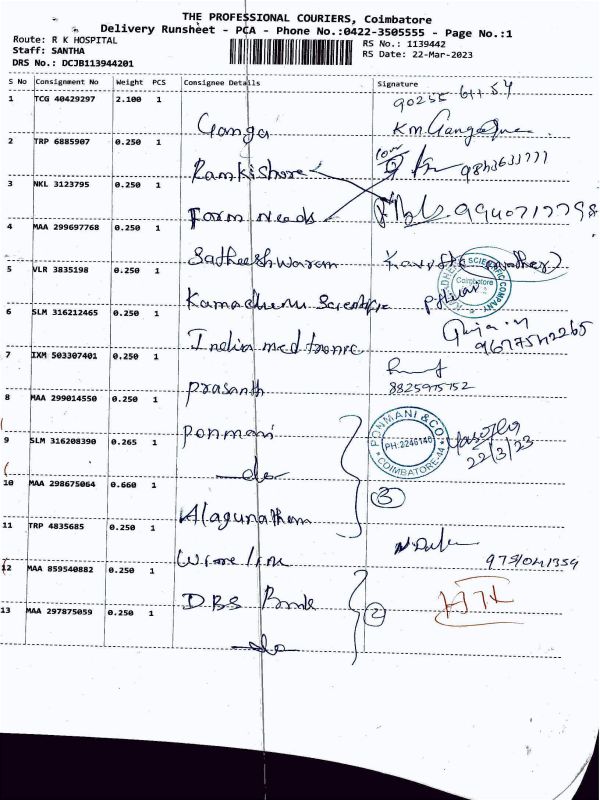 THE PROFESSIONAL COURIERS, Coimbatore
Delivery Runsheet - PCA - Phone No.:0422-3505555 - Page No.:1
Route: R K HOSPITAL
RS No.: 1139442
Staff: SANTHA
RS Date: 22-Mar-2023
DRS No.: DCJB113944201
S No Consignment No Weight PCS Consignee Details Signature
1 TCG 40429297 2.100 1 Ganga
2 TRP 6885907 0.250 1 Ramkishore 9843633777
3 NKL 3123795 0.250 1 Form needs
4 MAA 299697768 0.250 1 Satheeshwaram
5 VLR 3835198 0.250 1 Kamadhenu Scientific
SCIENTIFIC COMPANY
Coimbatore
6 SLM 316212465 0.250 1 Indian medtronic
7 IXM 503307401 0.250 1 Prasanth
8825975752
8 MAA 299014550 0.250 1 Ponmani
PONMANI & CO.
PH:2246146
COIMBATORE-44
22/3/23
9 SLM 316208390 0.265 1 do
10 MAA 298675064 0.660 1 Alagunathem
3
11 TRP 4835685 0.250 1
12 MAA 859540882 0.250 1 DBS Bank
2
13 MAA 297875059 0.250 1 do